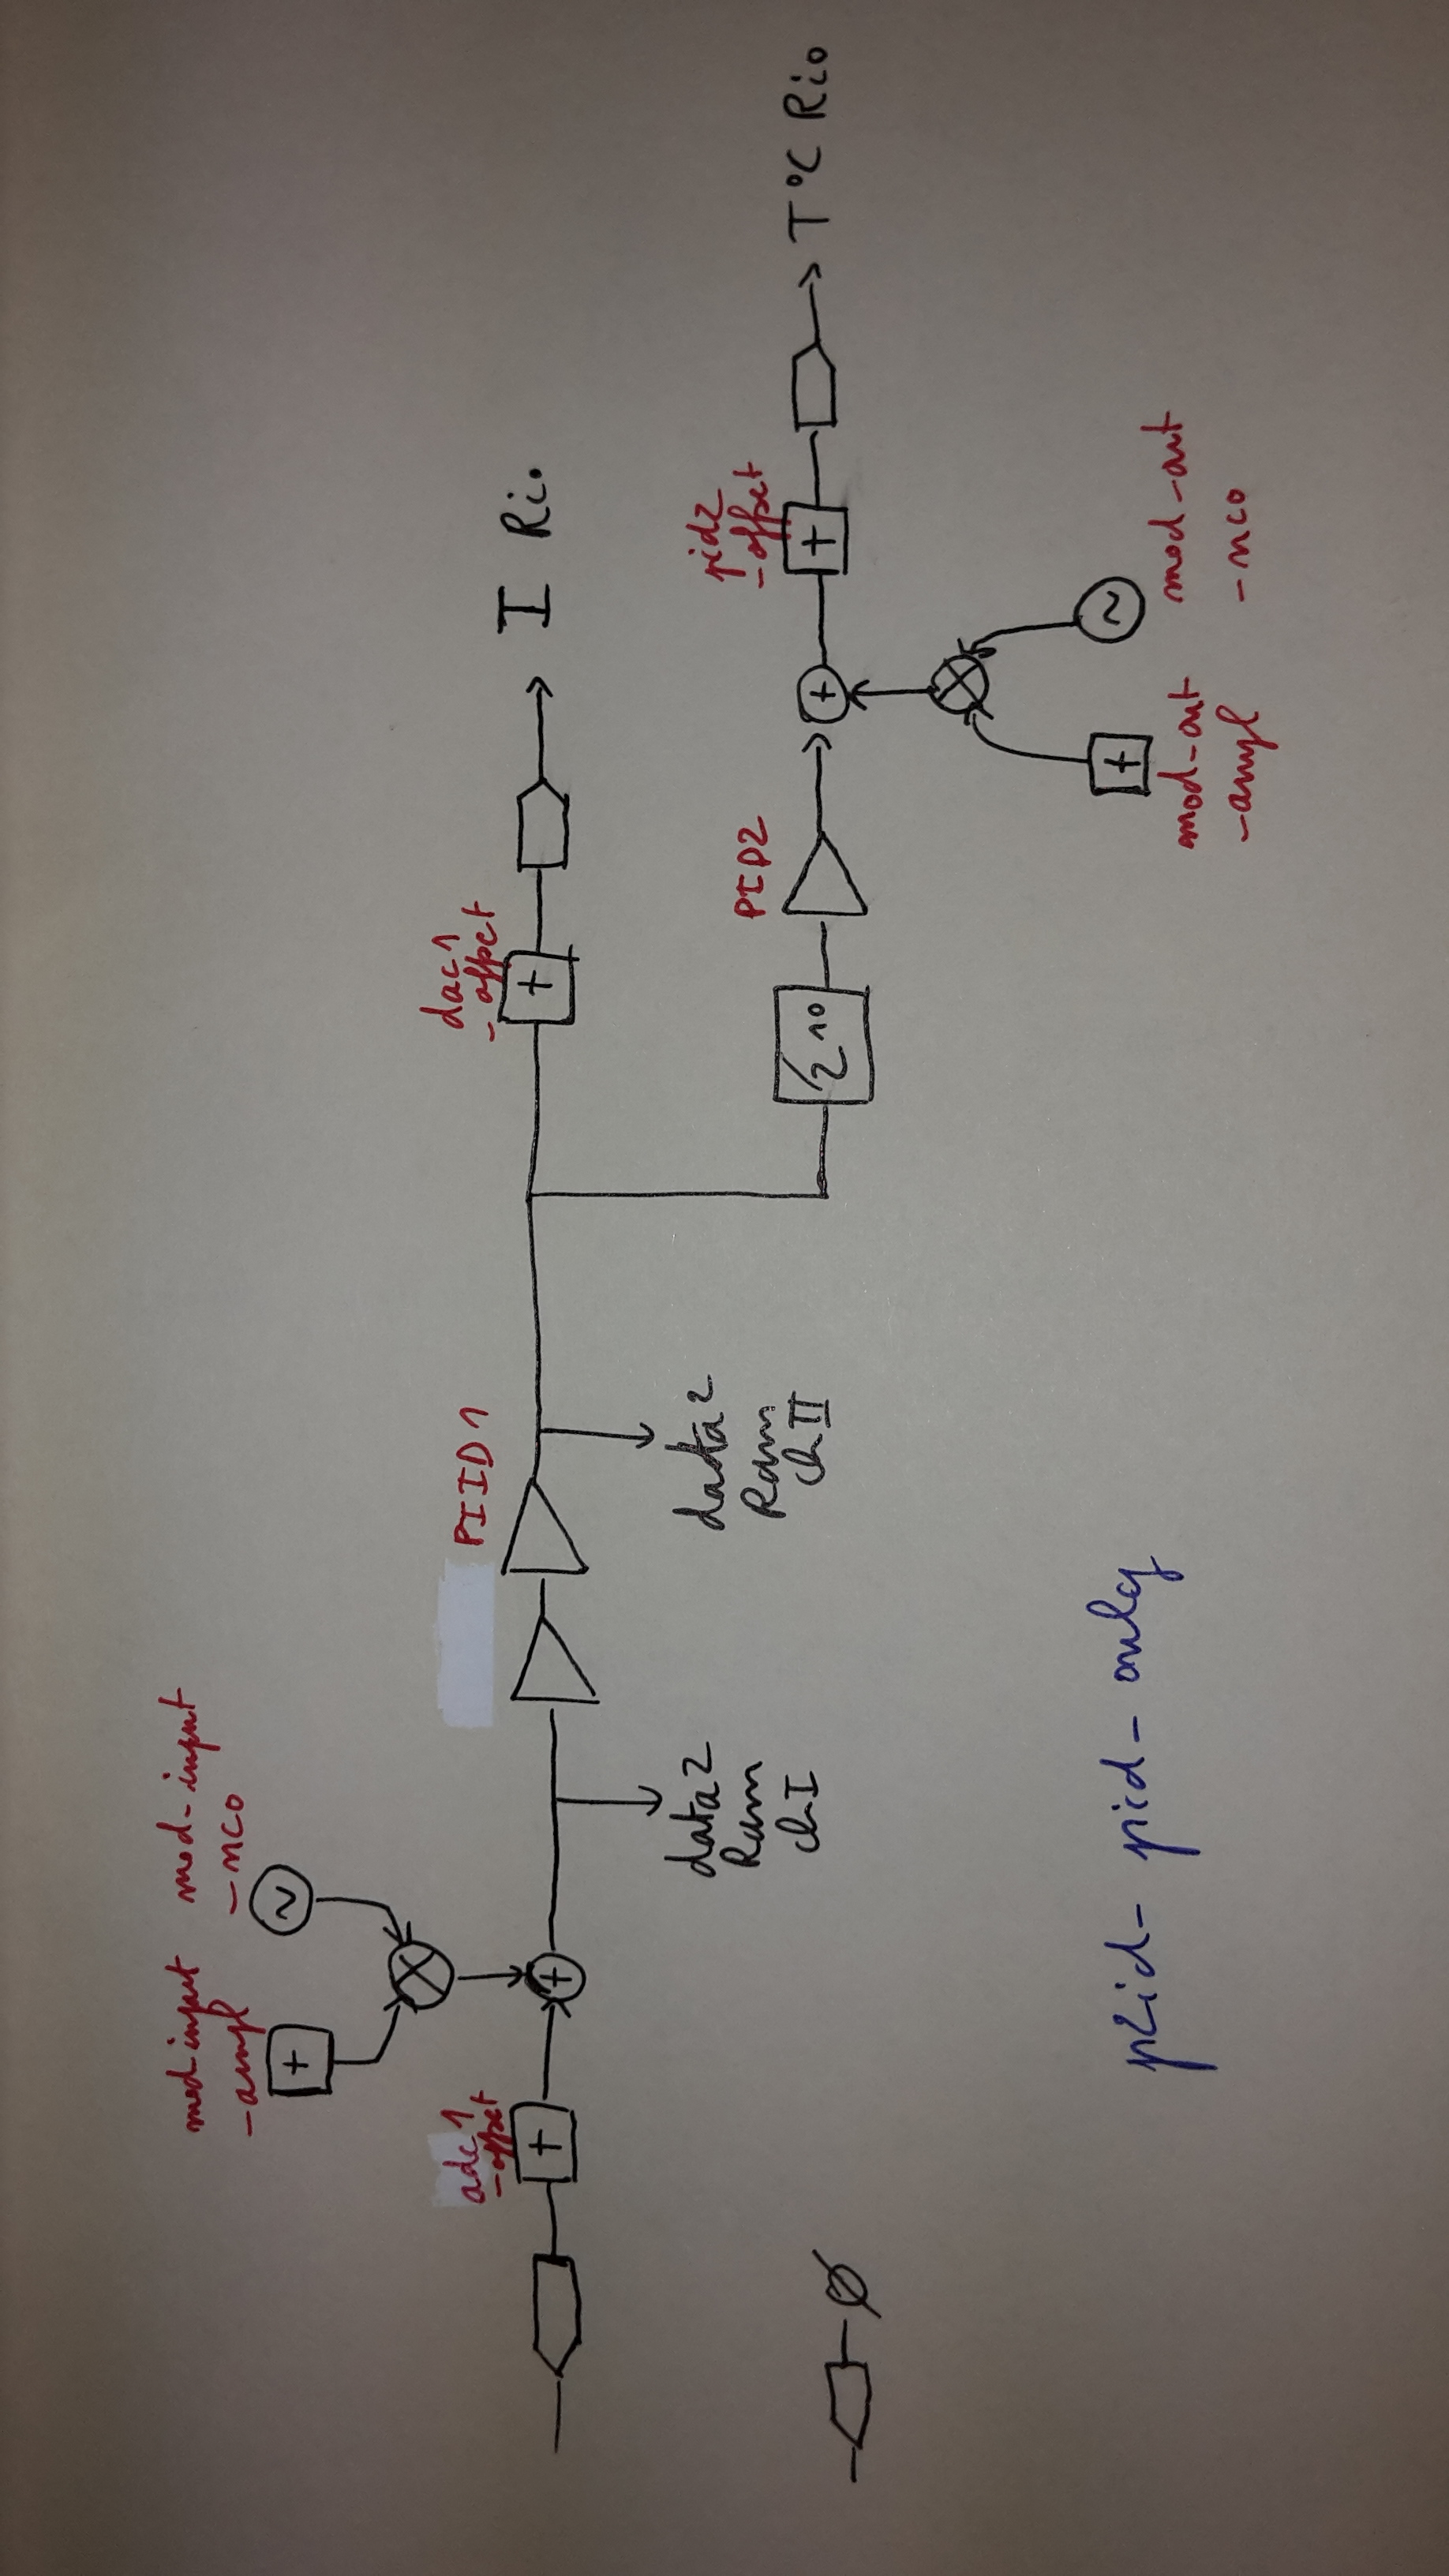 mod-input
-ampl
mod-input
-nco
+
~
adc1
-offset
+
+
PIID1
dac1
-offset
+
I Rio
data2
Ram
ch I
data2
Ram
ch II
pid2
-offset
PID2
/2^10
+
+
T°C Rio
Ø
+
~
mod-out
-ampl
mod-out
-nco
p2id-pid-only